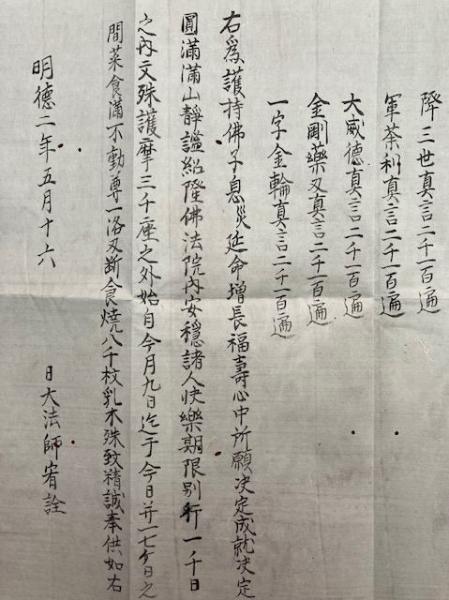 降三世真言二千一百遍
軍荼利真言二千一百遍
大威德真言二千一百遍
金剛藥叉真言二千一百遍
一字金輪真言二千一百遍
右為護持佛子息災延命增長福壽心中所願决定成就决定
圓滿滿山靜謐紹隆佛法院內安穩諸人快樂期限別行一千日
之內文殊護摩三千座之外始自今月九日迄于今日并一七ケ日之
間菜食滿不動尊一洛叉断食燒八千枚乳木殊致精誠奉供如右
明德二年五月十六日大法師宥詮